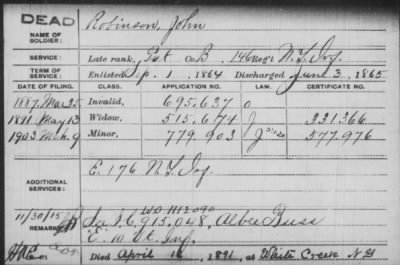 DEAD
Robinson, John
NAME OF SOLDIER:
SERVICE: Late rank, Pvt Co. B, 146 Reg't N.Y. Inf.
TERM OF SERVICE: Enlisted Sep. 1, 1864 Discharged June 3, 1865
DATE OF FILING. CLASS. APPLICATION NO. LAW. CERTIFICATE NO.
1887 Mar 25 Invalid, 695.637 O
1891 May 13 Widow, 515.674 J 331366
1903 Mch. 9 Minor, 779.903 J 577976
ADDITIONAL SERVICES: E. 176 N.Y. Inf.
WO 1112090
11/30/15 REMARKS: S.C. 915.048, Albee Buss
E. 10 Vt. Inf.
Died April 16, 1891, at White Creek N.Y.